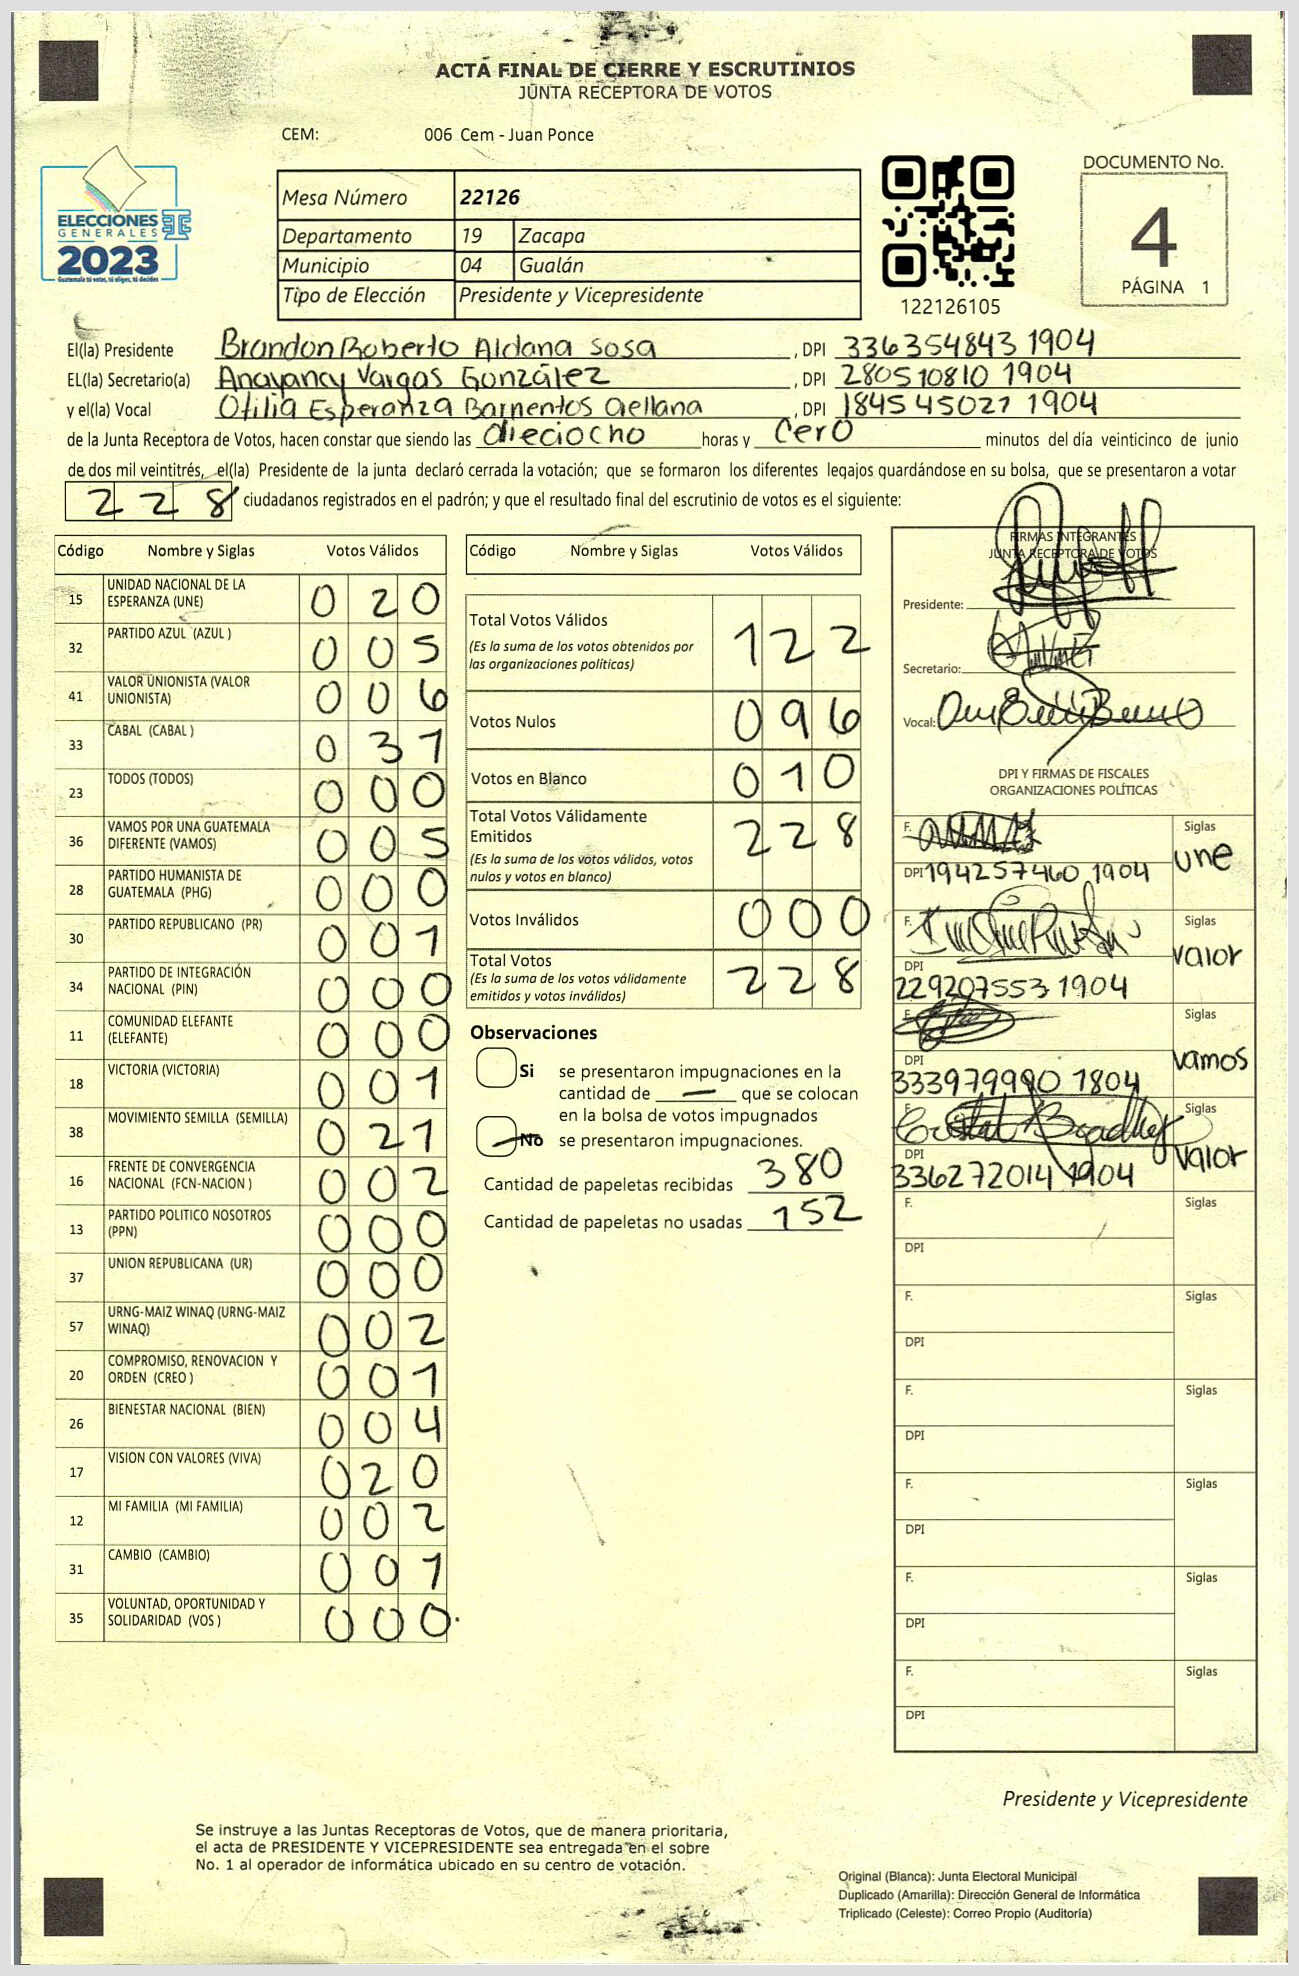 ACTA FINAL DE CIERRE Y ESCRUTINIOS
JUNTA RECEPTORA DE VOTOS
CEM: 006 Cem - Juan Ponce
ELECCIONES
GENERALES
2023
Guatemala tú votas, tú eliges, tú decides
Mesa Número 22126
Departamento 19 Zacapa
Municipio 04 Gualán
Tipo de Elección Presidente y Vicepresidente
122126105
DOCUMENTO No.
4
PÁGINA 1
El(la) Presidente Brandon Roberto Aldana Sosa , DPI 336354843 1904
EL(la) Secretario(a) Anayancy Vargas González , DPI 280510810 1904
y el(la) Vocal Ofilia Esperanza Barrientos , DPI 184545027 1904
de la Junta Receptora de Votos, hacen constar que siendo las dieciocho horas y cero minutos del día veinticinco de junio
de dos mil veintitrés, el(la) Presidente de la junta declaró cerrada la votación; que se formaron los diferentes legajos guardándose en su bolsa, que se presentaron a votar
228 ciudadanos registrados en el padrón; y que el resultado final del escrutinio de votos es el siguiente:
Código Nombre y Siglas Votos Válidos
15 UNIDAD NACIONAL DE LA ESPERANZA (UNE) 0 2 0
32 PARTIDO AZUL (AZUL ) 0 0 5
41 VALOR UNIONISTA (VALOR UNIONISTA) 0 0 6
33 CABAL (CABAL ) 0 3 1
23 TODOS (TODOS) 0 0 0
36 VAMOS POR UNA GUATEMALA DIFERENTE (VAMOS) 0 0 5
28 PARTIDO HUMANISTA DE GUATEMALA (PHG) 0 0 0
30 PARTIDO REPUBLICANO (PR) 0 0 1
34 PARTIDO DE INTEGRACIÓN NACIONAL (PIN) 0 0 0
11 COMUNIDAD ELEFANTE (ELEFANTE) 0 0 0
18 VICTORIA (VICTORIA) 0 0 1
38 MOVIMIENTO SEMILLA (SEMILLA) 0 2 1
16 FRENTE DE CONVERGENCIA NACIONAL (FCN-NACION ) 0 0 2
13 PARTIDO POLITICO NOSOTROS (PPN) 0 0 0
37 UNION REPUBLICANA (UR) 0 0 0
57 URNG-MAIZ WINAQ (URNG-MAIZ WINAQ) 0 0 2
20 COMPROMISO, RENOVACION Y ORDEN (CREO ) 0 0 1
26 BIENESTAR NACIONAL (BIEN) 0 0 4
17 VISION CON VALORES (VIVA) 0 2 0
12 MI FAMILIA (MI FAMILIA) 0 0 2
31 CAMBIO (CAMBIO) 0 0 1
35 VOLUNTAD, OPORTUNIDAD Y SOLIDARIDAD (VOS ) 0 0 0
Código Nombre y Siglas Votos Válidos
Total Votos Válidos 1 2 2
(Es la suma de los votos obtenidos por
las organizaciones políticas)
Votos Nulos 0 9 6
Votos en Blanco 0 1 0
Total Votos Válidamente
Emitidos 2 2 8
(Es la suma de los votos válidos, votos
nulos y votos en blanco)
Votos Inválidos 0 0 0
Total Votos 2 2 8
(Es la suma de los votos válidamente
emitidos y votos inválidos)
Observaciones
Si se presentaron impugnaciones en la
cantidad de — que se colocan
en la bolsa de votos impugnados
No se presentaron impugnaciones.
Cantidad de papeletas recibidas 380
Cantidad de papeletas no usadas 152
FIRMAS INTEGRANTES
JUNTA RECEPTORA DE VOTOS
Presidente:
Secretario:
Vocal:
DPI Y FIRMAS DE FISCALES
ORGANIZACIONES POLÍTICAS
F. Siglas
DPI 194257460 1904 une
F. Siglas
valor
DPI
229207553 1904
F. Siglas
DPI vamos
333979990 1804
F. Siglas
DPI valor
336272014 1904
F. Siglas
DPI
F. Siglas
DPI
F. Siglas
DPI
F. Siglas
DPI
F. Siglas
DPI
F. Siglas
DPI
Presidente y Vicepresidente
Se instruye a las Juntas Receptoras de Votos, que de manera prioritaria,
el acta de PRESIDENTE Y VICEPRESIDENTE sea entregada en el sobre
No. 1 al operador de informática ubicado en su centro de votación.
Original (Blanca): Junta Electoral Municipal
Duplicado (Amarilla): Dirección General de Informática
Triplicado (Celeste): Correo Propio (Auditoría)